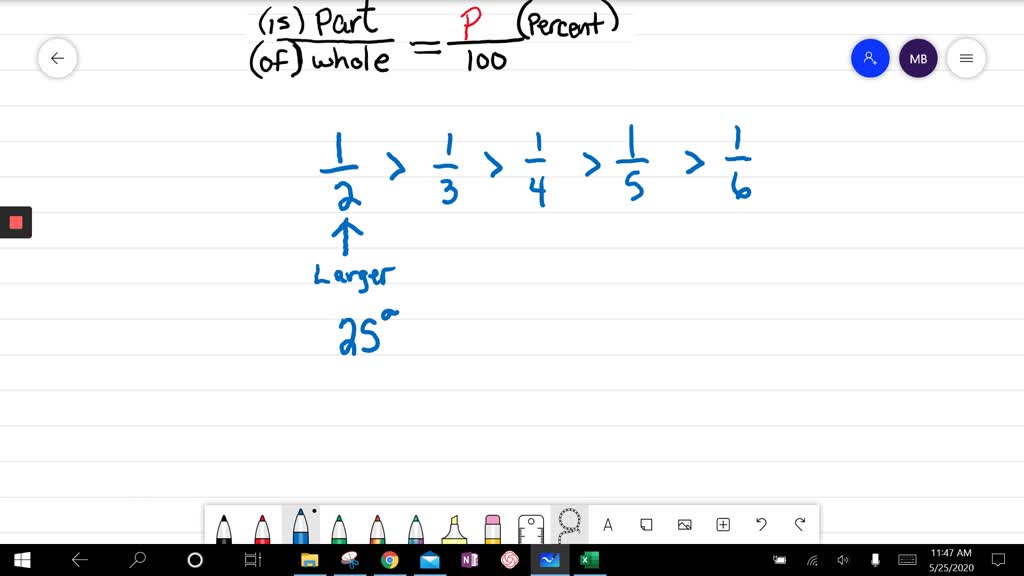 (is) Part / (of) whole = P / 100 (Percent)
MB
1/2 > 1/3 > 1/4 > 1/5 > 1/6
Larger
25
A
11:47 AM
5/25/2020